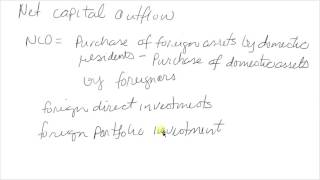 Net capital outflow
NCO = Purchase of foreign assets by domestic
residents - Purchase of domestic assets
by foreigners
foreign direct investments
foreign portfolio investment